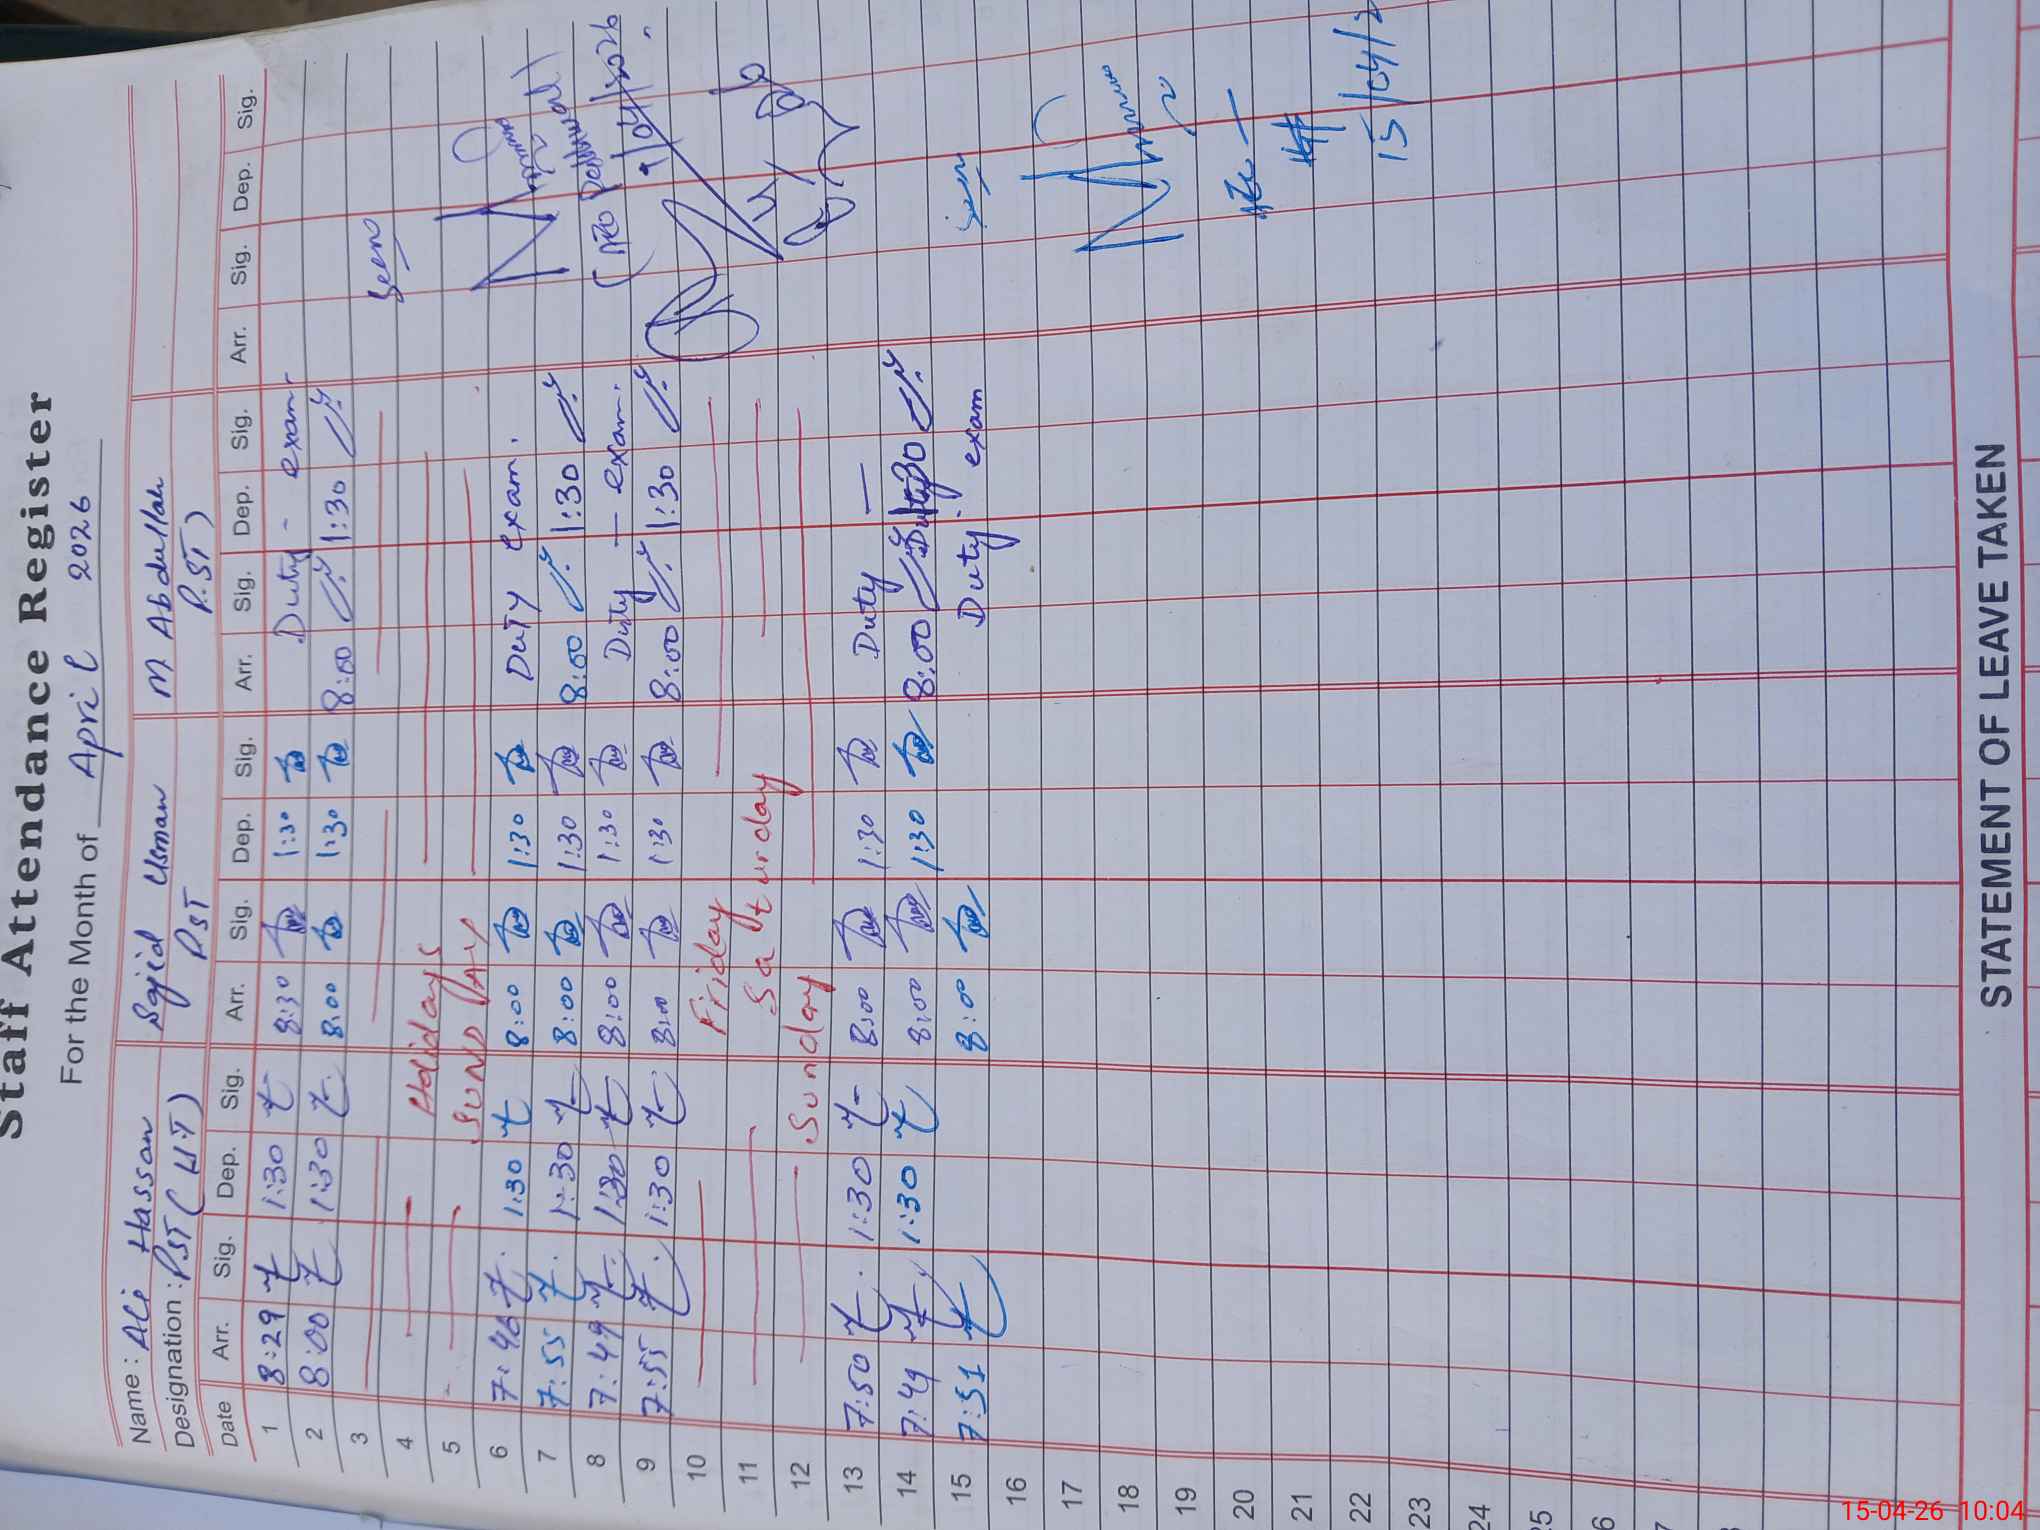 Staff Attendance Register
For the Month of April 2026
Name : Ali Hassan Sajid Usman M Abdullah
Designation : PST ( U.T ) PST P.ST )
Date Arr. Sig. Dep. Sig. Arr. Sig. Dep. Sig. Arr. Sig. Dep. Sig. Arr. Sig. Dep. Sig.
1 8:29 1:30 8:30 1:30 Duty - exam
2 8:00 1:30 8:00 1:30 8:00 1:30
3 Seen
4 Holidays
5 SUNDAY
6 7:46 1:30 8:00 1:30 Duty exam.
7 7:55 1:30 8:00 1:30 8:00 1:30
8 7:49 1:30 8:00 1:30 Duty — exam.
9 7:55 1:30 8:00 1:30 8:00 1:30 9/04/2026
10 Friday
11 Saturday
12 Sunday
13 7:50 1:30 8:00 1:30 Duty —
14 7:49 1:30 8:00 1:30 8:00 1:30
15 7:51 8:00 Duty. exam
16
17
18
19
20
21
22 15/04/2
23
24
25
6
7
STATEMENT OF LEAVE TAKEN
15-04-26 10:04